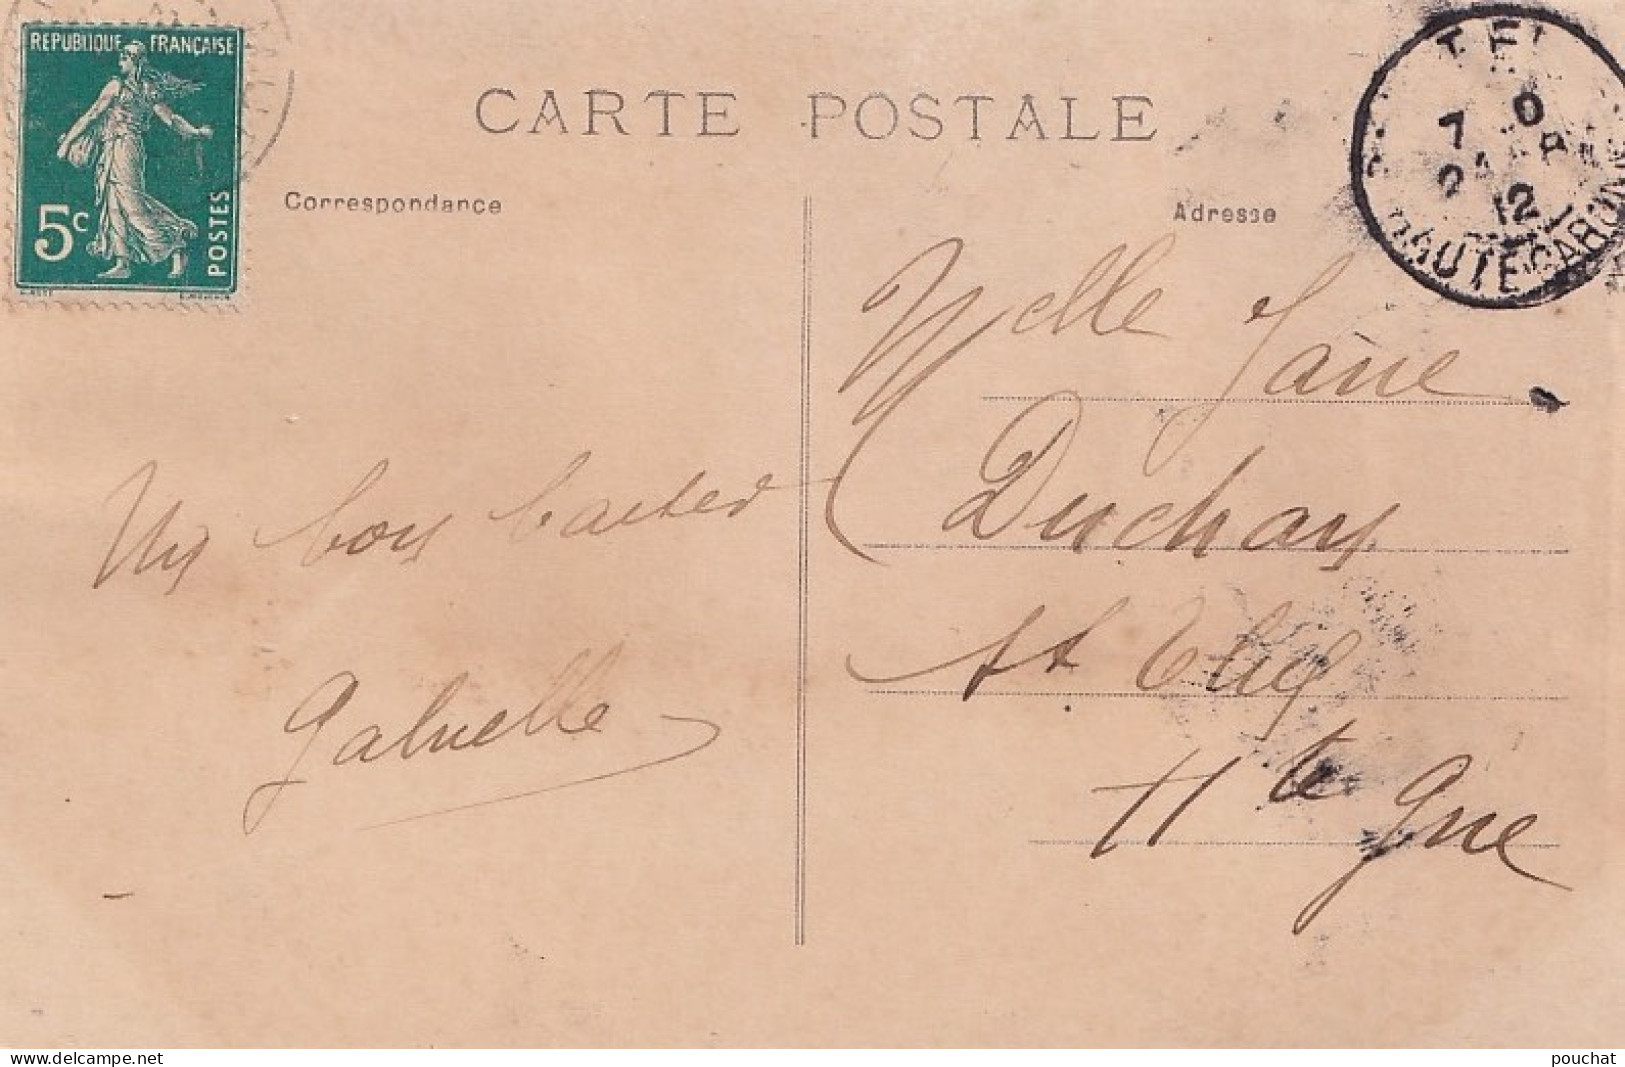 REPUBLIQUE FRANÇAISE
5c
POSTES
CARTE POSTALE
Correspondance
Adresse
7
12
HAUTE GARONNE
Melle Jane
Duchan
St
Hte Gne
Un bon baiser
Gabrielle
www.delcampe.net
pouchat